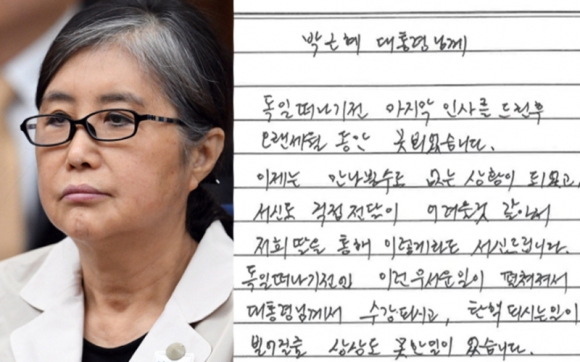 박근혜 대통령님께
독일떠나기전 마지막 인사를 드린후
오랜세월 동안 못뵈었습니다.
이제는 만나뵐수도 없는 상황이 되었고,
서신도 직접전달이 어려울것 같아서
저희 딸을 통해 이렇게라도 서신드립니다.
독일떠나기전인 이런 무서운일이 펼쳐져서
대통령님께서 수감되시고, 탄핵 되시는일이
벌어질줄 상상도 못한일이 었습니다.